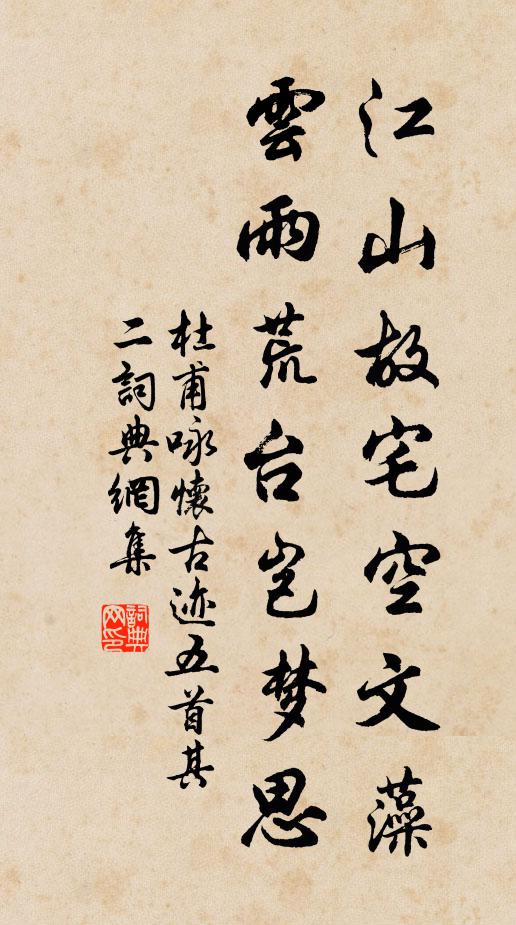 江山故宅空文藻
雲雨荒台岂梦思
杜甫咏懷古迹五首其
二詞典網集
詞典網印